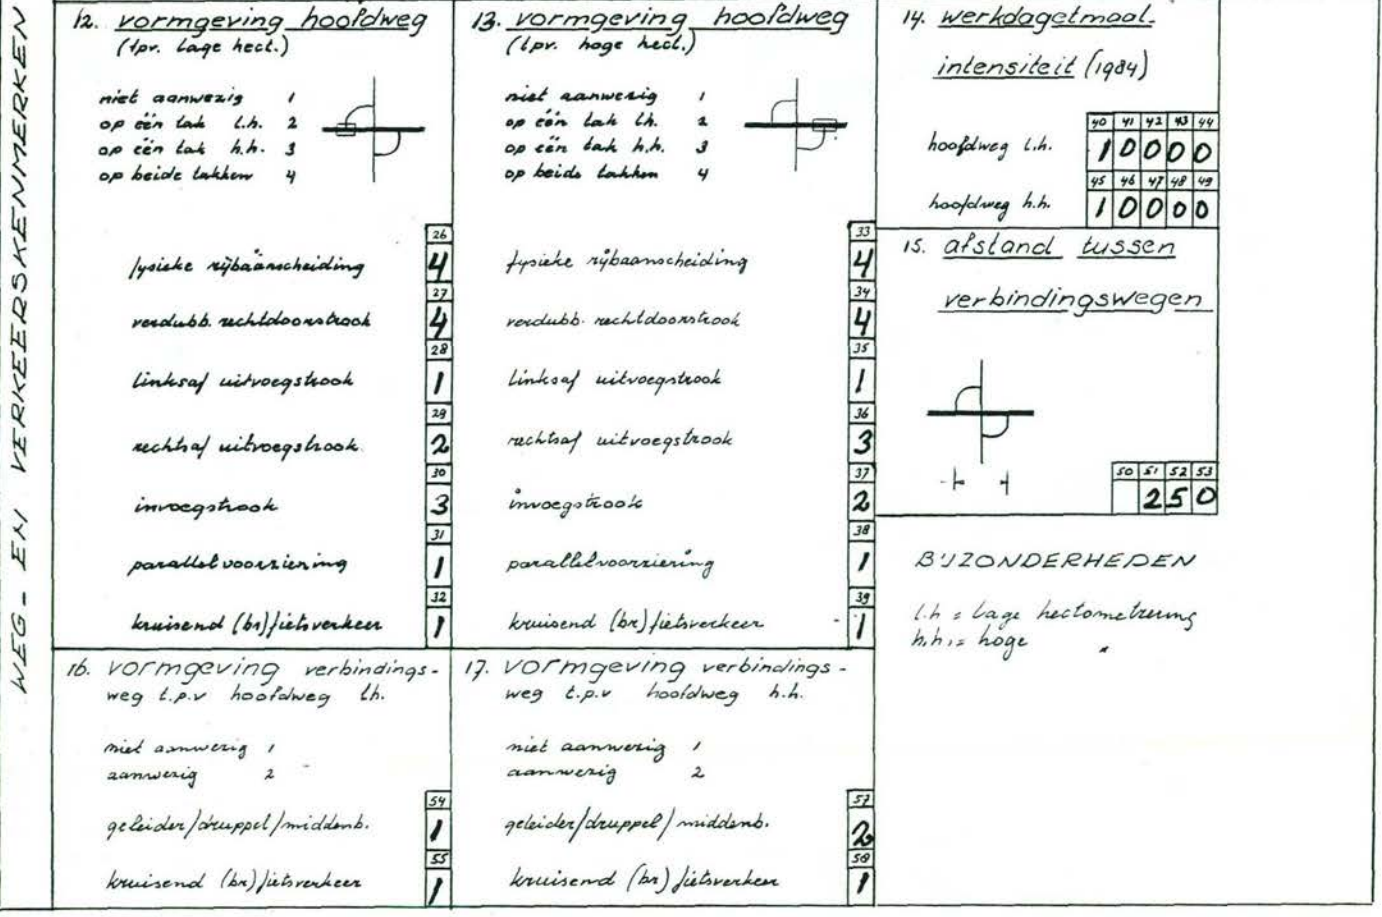 WEG- EN VERKEERSKENMERKEN
12. vormgeving hoofdweg
(tpv. lage hect.)
niet aanwezig 1
op één tak l.h. 2
op één tak h.h. 3
op beide takken 4
26
fysieke rijbaanscheiding 4
27
verdubb. rechtdoorstrook 4
28
linksaf uitvoegstrook 1
29
rechtsaf uitvoegstrook 2
30
invoegstrook 3
31
parallelvoorziening 1
32
kruisend (br)fietsverkeer 1
13. vormgeving hoofdweg
(tpv. hoge hect.)
niet aanwezig 1
op één tak l.h. 2
op één tak h.h. 3
op beide takken 4
33
fysieke rijbaanscheiding 4
34
verdubb. rechtdoorstrook 4
35
linksaf uitvoegstrook 1
36
rechtsaf uitvoegstrook 3
37
invoegstrook 2
38
parallelvoorziening 1
39
kruisend (br)fietsverkeer 1
14. werkdagetmaal-
intensiteit (1984)
40 41 42 43 44
hoofdweg l.h. 1 0 0 0 0
45 46 47 48 49
hoofdweg h.h. 1 0 0 0 0
15. afstand tussen
verbindingswegen
50 51 52 53
2 5 0
BIJZONDERHEDEN
l.h = lage hectometrering
h.h. = hoge "
16. vormgeving verbindings-
weg t.p.v hoofdweg l.h.
niet aanwezig 1
aanwezig 2
54
geleider/druppel/middenb. 1
55
kruisend (br)fietsverkeer 1
17. vormgeving verbindings-
weg t.p.v hoofdweg h.h.
niet aanwezig 1
aanwezig 2
57
geleider/druppel/middenb. 2
58
kruisend (br)fietsverkeer 1